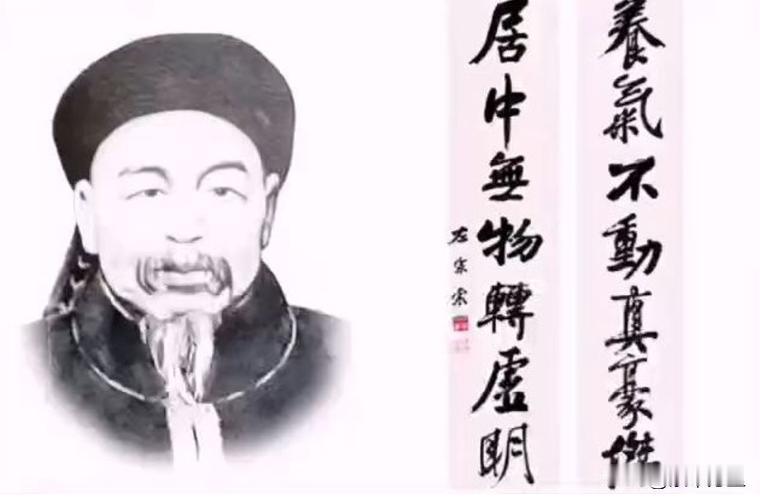 養氣不動真豪傑
居中無物轉虛明
左宗棠